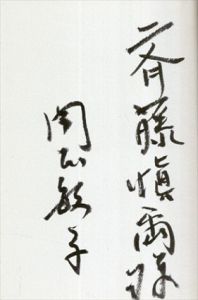 斉藤慎爾様
関口敏子